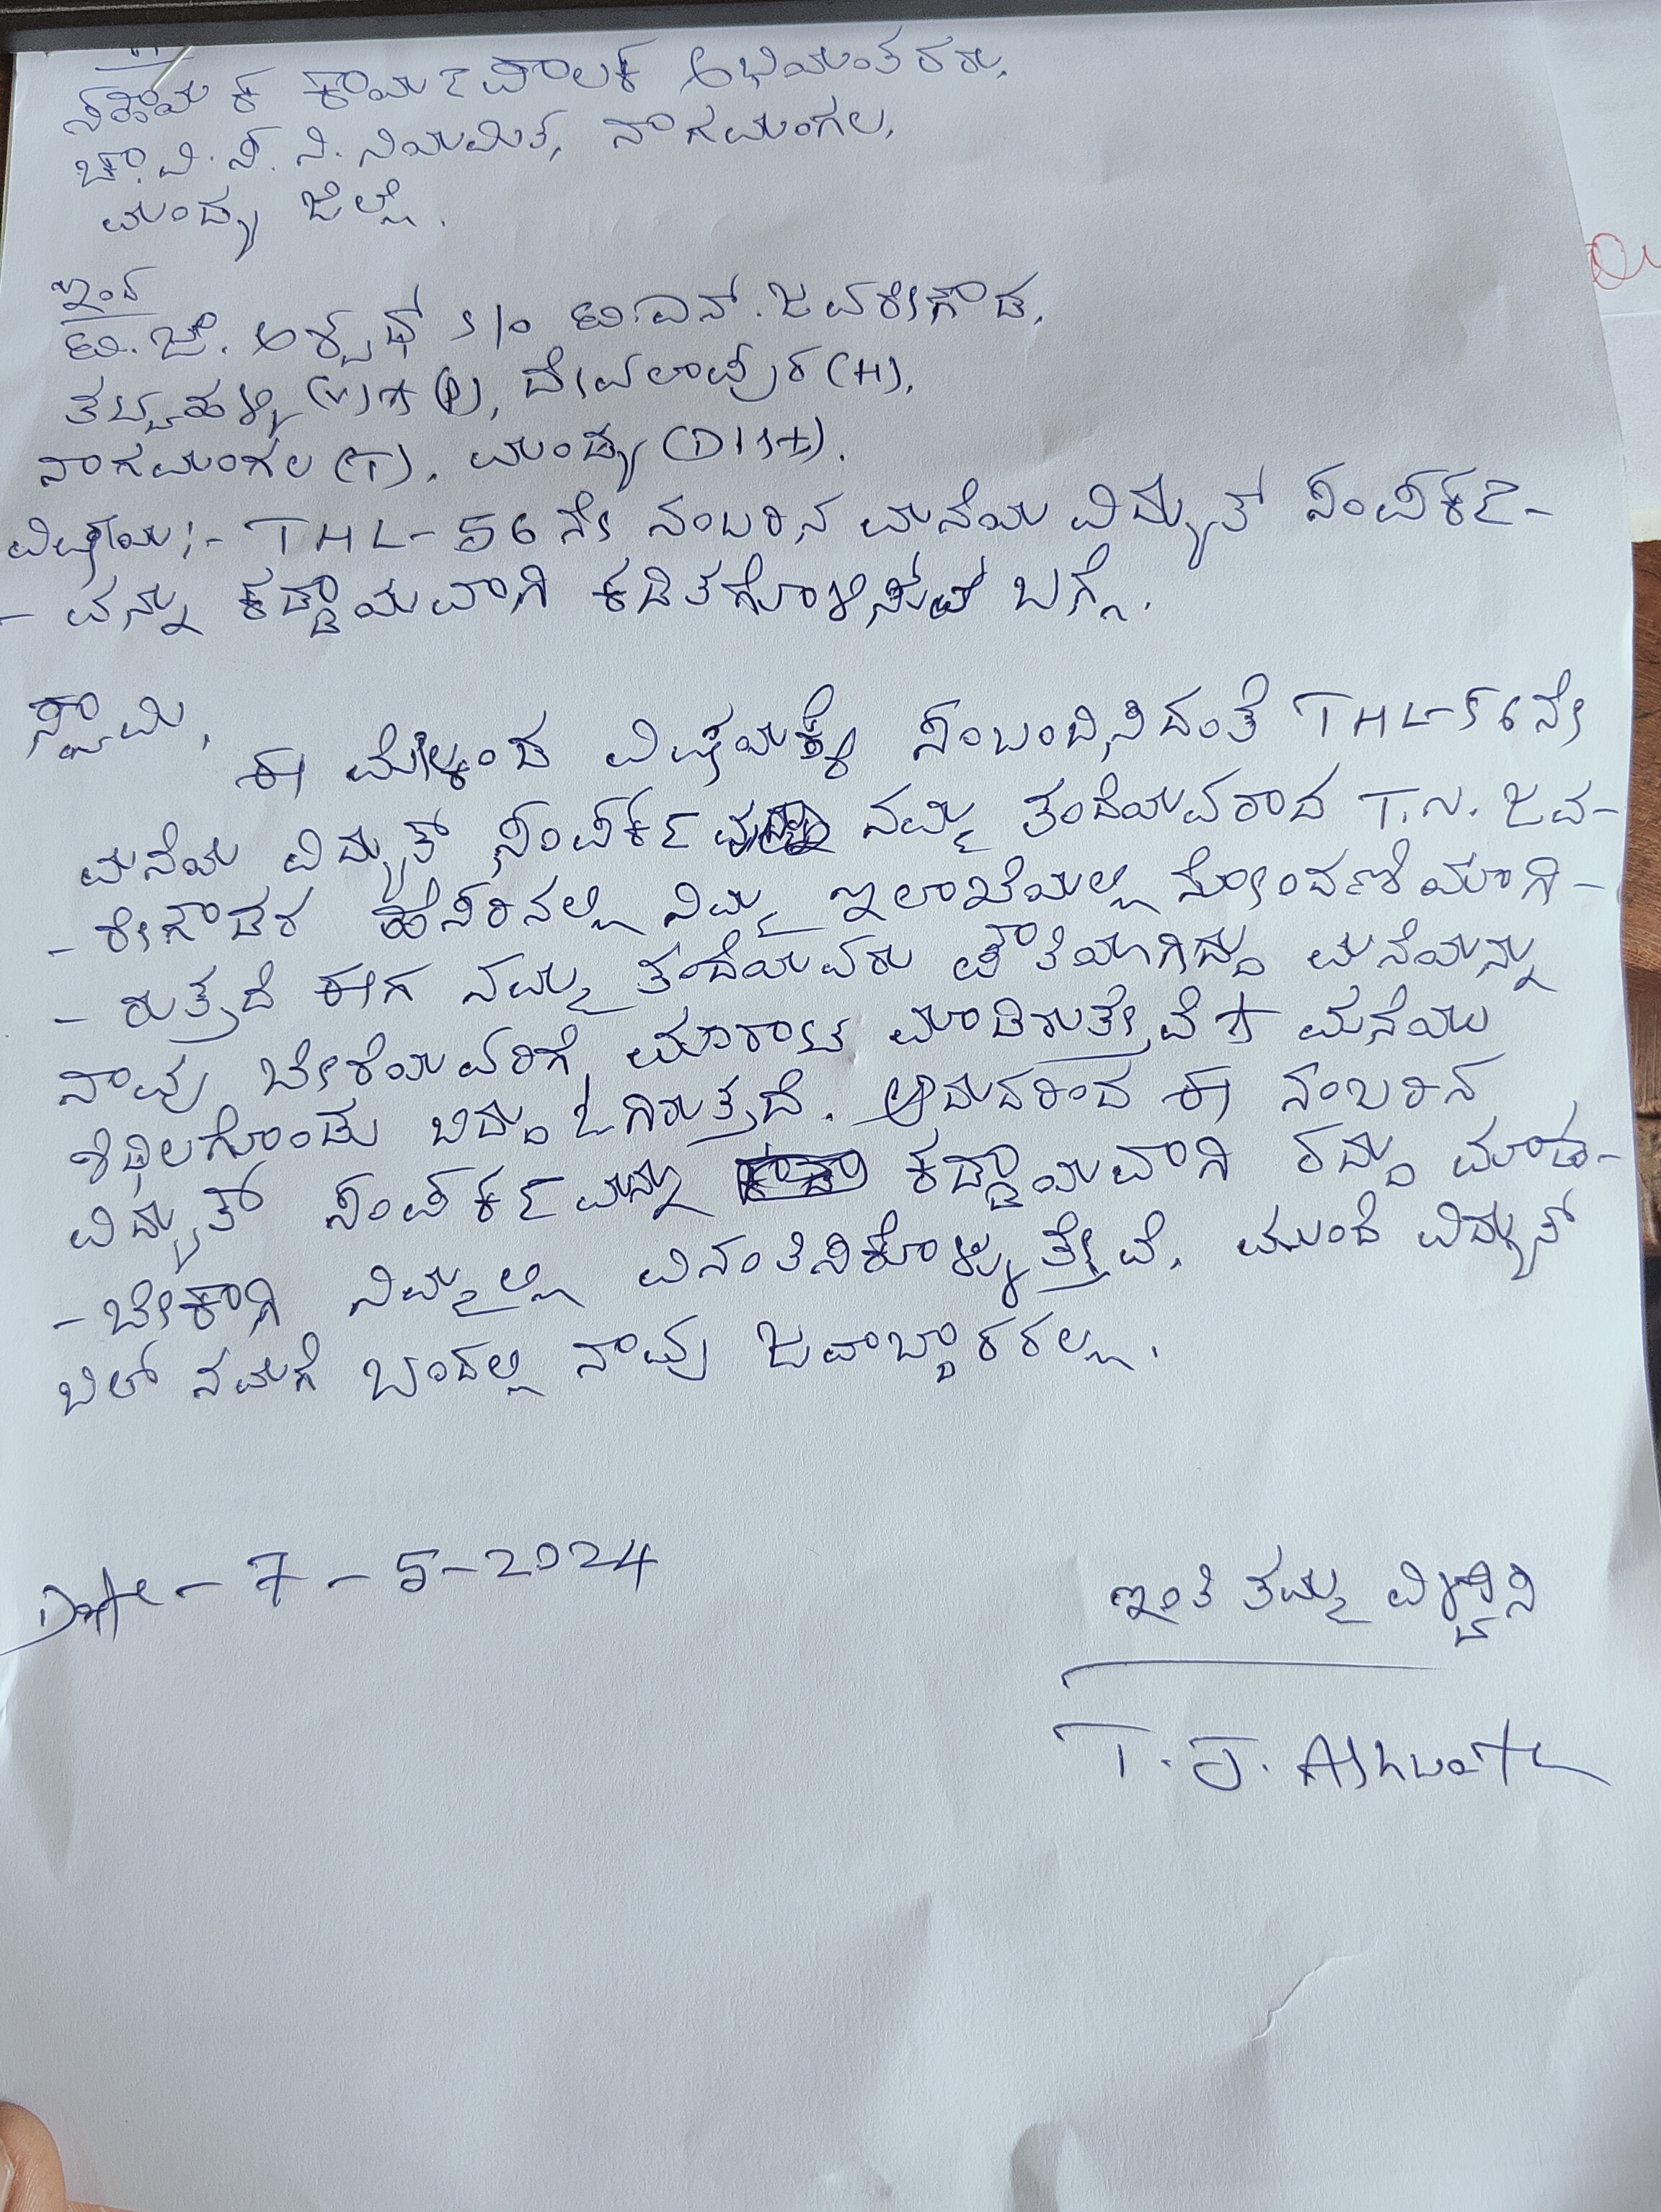 ಸಹಾಯಕ ಕಾರ್ಯಪಾಲಕ ಅಭಿಯಂತರರು,
ಚಾ.ವಿ.ಸ.ನಿ.ನಿಯಮಿತ, ನಾಗಮಂಗಲ,
ಮಂಡ್ಯ ಜಿಲ್ಲೆ.
ಇಂದ
ಟಿ.ಜೆ. ಅಶ್ವಥ್ s/o ಟಿ.ಎನ್.ಜವರೇಗೌಡ,
ತಟ್ಟಹಳ್ಳಿ (V)+(P), ದೇವಲಾಪುರ (H),
ನಾಗಮಂಗಲ (T), ಮಂಡ್ಯ (Dist).
ವಿಷಯ:- THL-56ನೇ ನಂಬರಿನ ಮನೆಯ ವಿದ್ಯುತ್ ಸಂಪರ್ಕ-
-ವನ್ನು ಕಡ್ಡಾಯವಾಗಿ ಕಡಿತಗೊಳಿಸುವ ಬಗ್ಗೆ.
ಸ್ವಾಮಿ,
ಈ ಮೇಲ್ಕಂಡ ವಿಷಯಕ್ಕೆ ಸಂಬಂಧಿಸಿದಂತೆ THL-56ನೇ
ಮನೆಯ ವಿದ್ಯುತ್ ಸಂಪರ್ಕ ನಮ್ಮ ತಂದೆಯವರಾದ T.N. ಜವ-
-ರೇಗೌಡರ ಹೆಸರಿನಲ್ಲಿ ನಿಮ್ಮ ಇಲಾಖೆಯಲ್ಲಿ ನೋಂದಣಿಯಾಗಿ-
-ರುತ್ತದೆ ಈಗ ನಮ್ಮ ತಂದೆಯವರು ಪೌತಿಯಾಗಿದ್ದು ಮನೆಯನ್ನು
ನಾವು ಬೇರೆಯವರಿಗೆ ಮಾರಾಟ ಮಾಡಿರುತ್ತೇವೆ + ಮನೆಯು
ಶಿಥಿಲಗೊಂಡು ಬಿದ್ದು ಹೋಗಿರುತ್ತದೆ. ಆದುದರಿಂದ ಈ ನಂಬರಿನ
ವಿದ್ಯುತ್ ಸಂಪರ್ಕವನ್ನು ಕಡ್ಡಾಯವಾಗಿ ರದ್ದು ಮಾಡ-
-ಬೇಕಾಗಿ ನಿಮ್ಮಲ್ಲಿ ವಿನಂತಿಸಿಕೊಳ್ಳುತ್ತೇವೆ. ಮುಂದೆ ವಿದ್ಯುತ್
ಬಿಲ್ ನಮಗೆ ಬಂದಲ್ಲಿ ನಾವು ಜವಾಬ್ದಾರರಲ್ಲ.
Date - 7-5-2024
ಇಂತಿ ತಮ್ಮ ವಿಶ್ವಾಸಿ
T.J. Ashwath